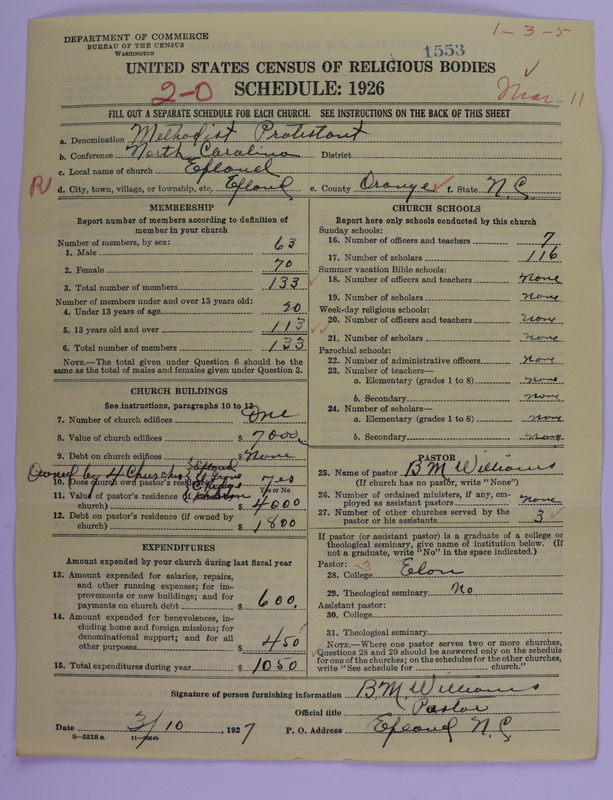 DEPARTMENT OF COMMERCE
BUREAU OF THE CENSUS
WASHINGTON
1-3-5
1553
UNITED STATES CENSUS OF RELIGIOUS BODIES
2-0 SCHEDULE: 1926
Mar-11
FILL OUT A SEPARATE SCHEDULE FOR EACH CHURCH. SEE INSTRUCTIONS ON THE BACK OF THIS SHEET
a. Denomination Methodist Protestant
b. Conference North Carolina District
c. Local name of church Efland
R d. City, town, village, or township, etc. Efland e. County Orange f. State N.C.
MEMBERSHIP
Report number of members according to definition of
member in your church
Number of members, by sex:
1. Male 63
2. Female 70
3. Total number of members 133
Number of members under and over 13 years old:
4. Under 13 years of age 20
5. 13 years old and over 113
6. Total number of members 133
NOTE.—The total given under Question 6 should be
the same as the total of males and females given under Question 3.
CHURCH BUILDINGS
See instructions, paragraphs 10 to 13
7. Number of church edifices One
8. Value of church edifices $ 7000
9. Debt on church edifices $ None
Owned by 4 Churches Efland
10. Does church own pastor's residence? yes
Yes or No
11. Value of pastor's residence (if owned by
church) $ 4000
12. Debt on pastor's residence (if owned by
church) $ 1800
EXPENDITURES
Amount expended by your church during last fiscal year
13. Amount expended for salaries, repairs,
and other running expenses; for im-
provements or new buildings; and for
payments on church debt $ 600.
14. Amount expended for benevolences, in-
cluding home and foreign missions; for
denominational support; and for all
other purposes $ 450
15. Total expenditures during year $ 1050
CHURCH SCHOOLS
Report here only schools conducted by this church
Sunday schools:
16. Number of officers and teachers 7
17. Number of scholars 116
Summer vacation Bible schools:
18. Number of officers and teachers None
19. Number of scholars None
Week-day religious schools:
20. Number of officers and teachers None
21. Number of scholars None
Parochial schools:
22. Number of administrative officers None
23. Number of teachers—
a. Elementary (grades 1 to 8) None
b. Secondary None
24. Number of scholars—
a. Elementary (grades 1 to 8) None
b. Secondary None
PASTOR
25. Name of pastor B M Williams
(If church has no pastor, write "None")
26. Number of ordained ministers, if any, em-
ployed as assistant pastors None
27. Number of other churches served by the
pastor or his assistants 3
If pastor (or assistant pastor) is a graduate of a college or
theological seminary, give name of institution below. (If
not a graduate, write "No" in the space indicated.)
Pastor: 3
28. College Elon
29. Theological seminary No
Assistant pastor:
30. College
31. Theological seminary
NOTE.—Where one pastor serves two or more churches,
Questions 28 and 29 should be answered only on the schedule
for one of the churches; on the schedules for the other churches,
write "See schedule for church."
Signature of person furnishing information B.M. Williams
Official title Pastor
Date 3/10, 1927 P. O. Address Efland N.C.
8—5318a